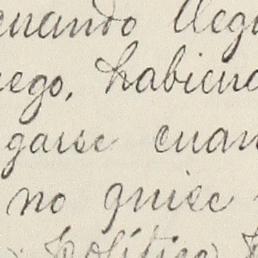 cuando llegu
ego, habiend
garse cuan
no quise
política